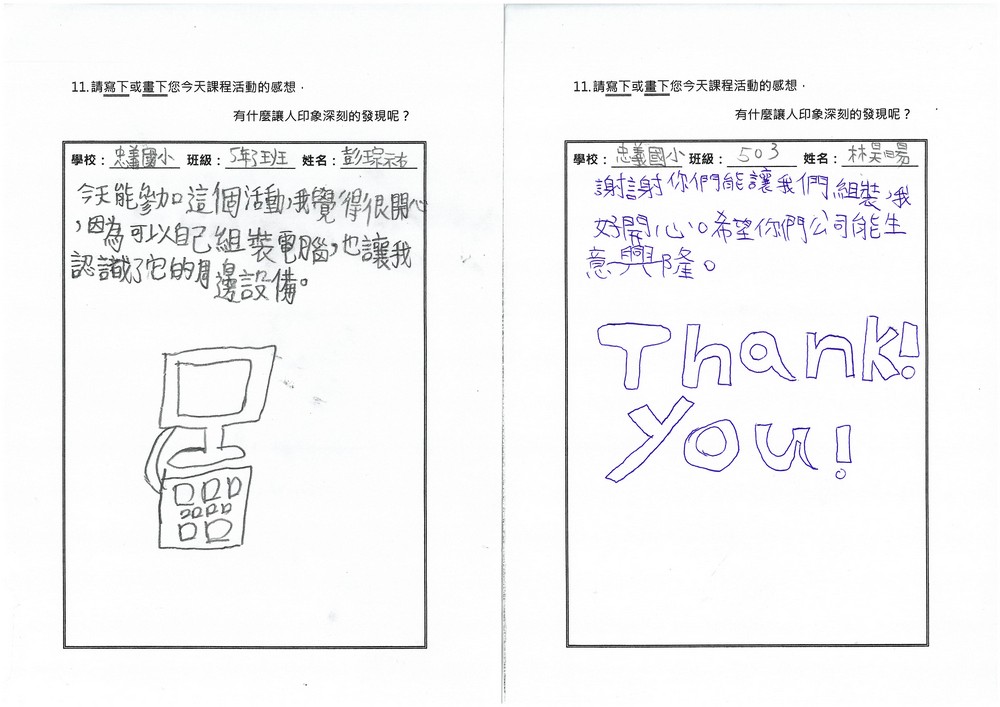 11.請寫下或畫下您今天課程活動的感想，
有什麼讓人印象深刻的發現呢？
學校：忠義國小 班級：5年3班 姓名：彭琮祐
今天能參加這個活動，我覺得很開心
，因為可以自己組裝電腦，也讓我
認識了它的周邊設備。
11.請寫下或畫下您今天課程活動的感想，
有什麼讓人印象深刻的發現呢？
學校：忠義國小 班級：503 姓名：林昊暘
謝謝你們能讓我們組裝，我
好開心。希望你們公司能生
意興隆。
Thank!
you!